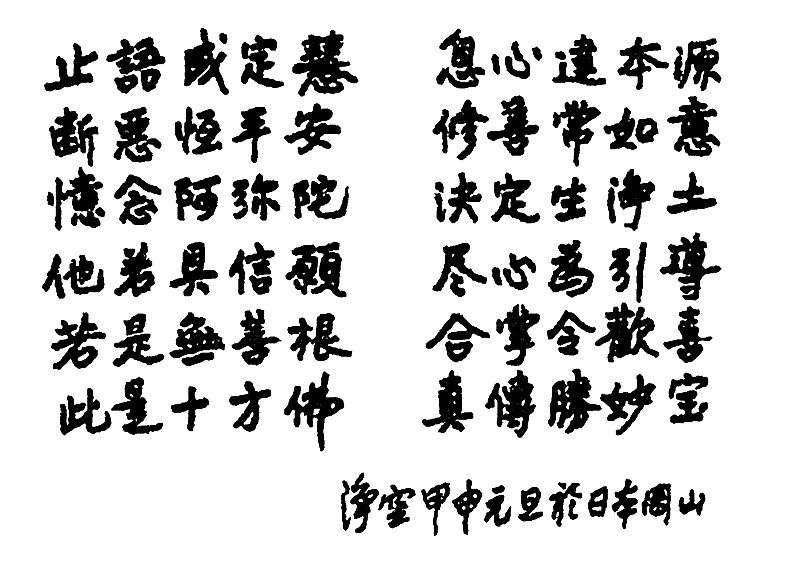 止語成定慧 息心達本源
断悪恆平安 修善常如意
憶念阿弥陀 決定生淨土
他若具信願 尽心為引導
若是無善根 合掌令歡喜
此是十方佛 真傳勝妙宝
淨空甲申元旦於日本岡山